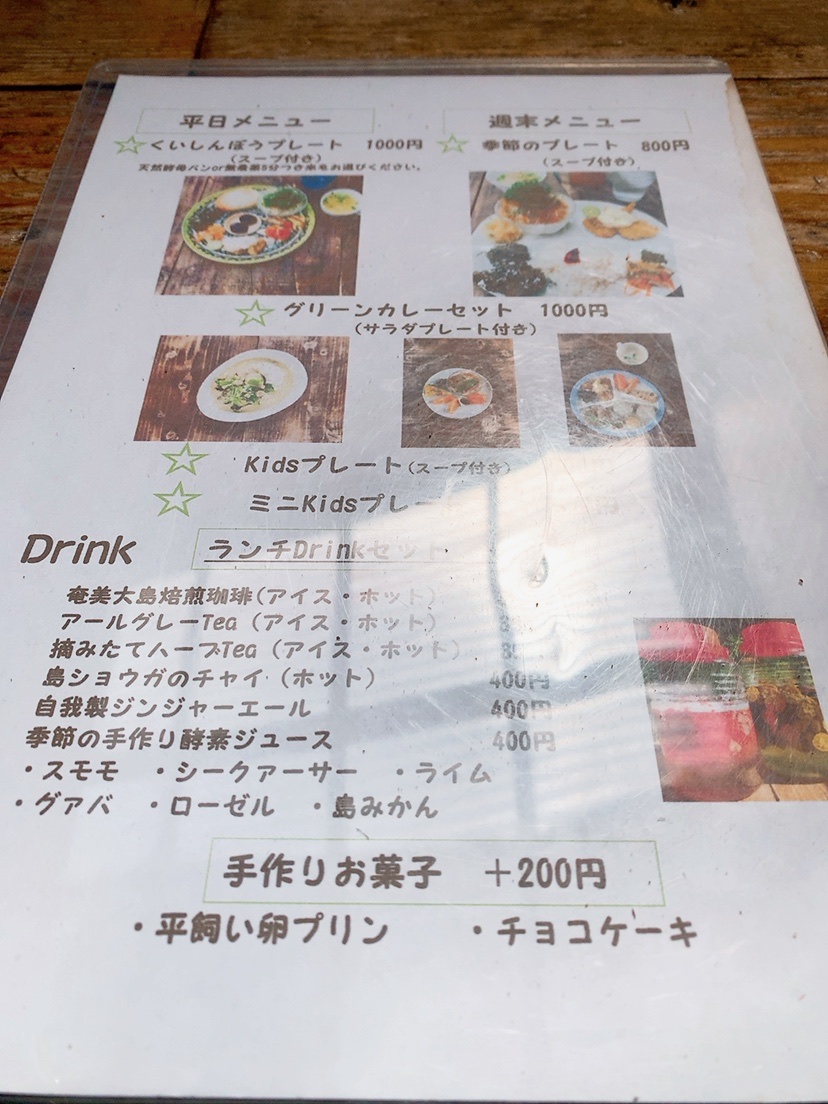 平日メニュー 週末メニュー
☆くいしんぼうプレート 1000円 ☆ 季節のプレート 800円
(スープ付き) (スープ付き)
天然酵母パンor無農薬5分つき米をお選びください。
☆グリーンカレーセット 1000円
(サラダプレート付き)
☆ Kidsプレート(スープ付き)
☆ ミニKidsプレー
Drink ランチDrinkセット
奄美大島焙煎珈琲(アイス・ホット)
アールグレーTea(アイス・ホット)
摘みたてハーブTea(アイス・ホット)
島ショウガのチャイ(ホット) 400円
自我製ジンジャーエール 400円
季節の手作り酵素ジュース 400円
・スモモ ・シークァーサー ・ライム
・グァバ ・ローゼル ・島みかん
手作りお菓子 +200円
・平飼い卵プリン ・チョコケーキ